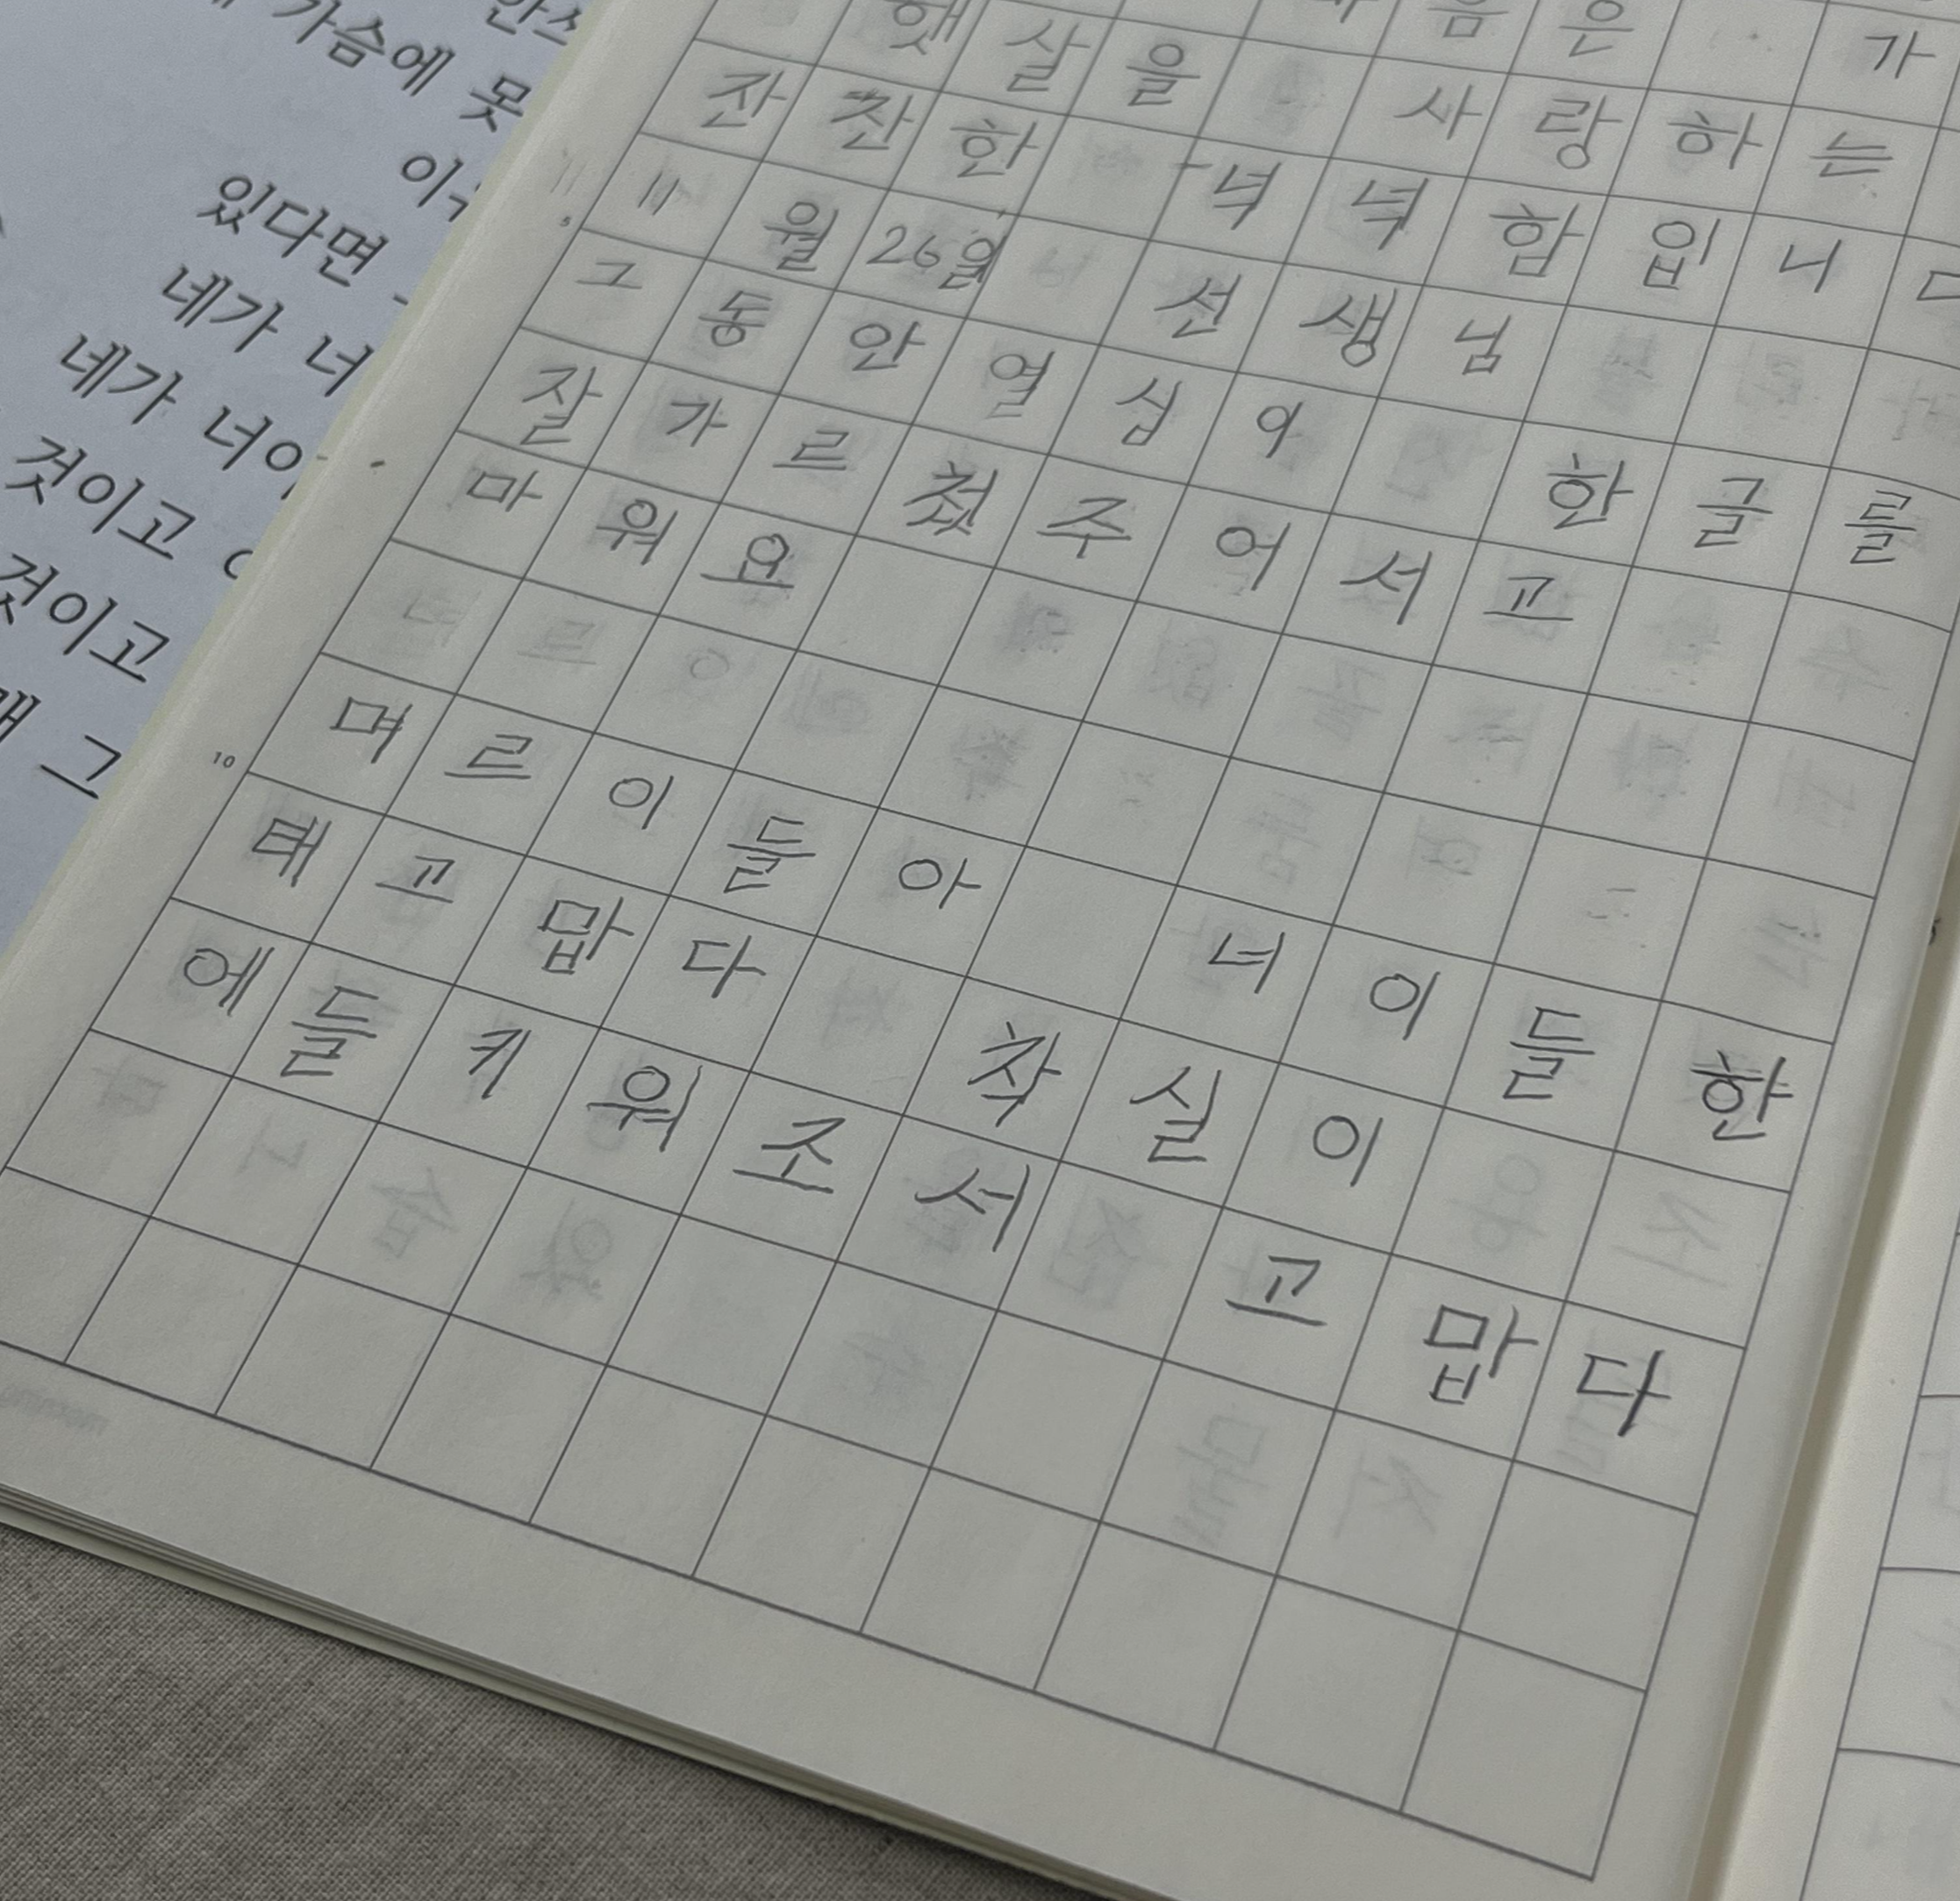 가슴에 못
있다면
네가 너
네가 너이
것이고
것이고
그
음은 가
햇살을 사랑하는
잔찬한 녁녁함입니다
11월 26일 선생님
그동안 열십이 한글를
잘가르쳤주어서고
마워요
며르이들아 너이들한
태고맙다 착실이
에들키워조서 고맙다
5
10